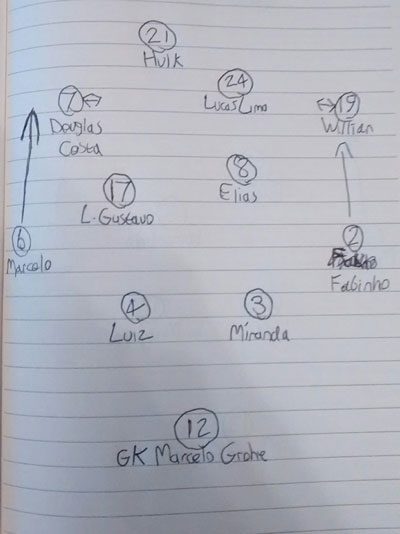 21
Hulk
24
Lucas Lima
7
Douglas
Costa
19
Willian
8
Elias
17
L. Gustavo
6
Marcelo
2
Fabinho
4
Luiz
3
Miranda
12
GK Marcelo Grohe